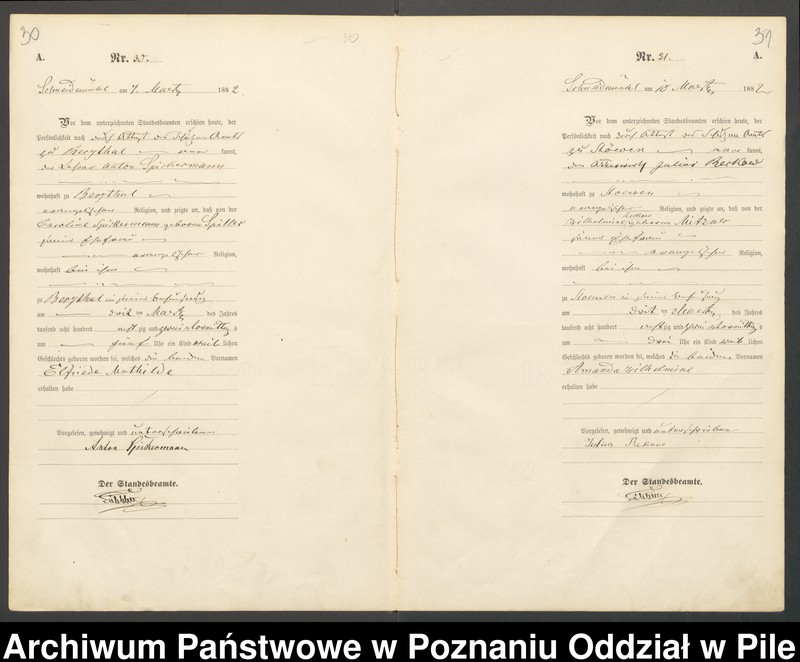 30
A.
Nr. 30.
Schneidemühl am 7. Maerz 1882.
Vor dem unterzeichneten Standesbeamten erschien heute, der
Persönlichkeit nach durch Attest des Schulzen Amts
zu Bergthal kannt,
der Anton Spickermann
wohnhaft zu Bergthal
evangelischer Religion, und zeigte an, daß von der
Caroline Spickermann geborene
seiner Ehefrau
evangelischer Religion,
wohnhaft bei ihm
zu Bergthal in seiner Behausung
am Maerz des Jahres
tausend acht hundert achtzig und zwei Vormittags
um fünf Uhr ein Kind weiblichen
Geschlechts geboren worden sei, welches die beiden Vornamen
Elfriede Mathilde
erhalten habe
Vorgelesen, genehmigt und unterschrieben
Anton Spickermann
Der Standesbeamte.
31
Nr. 31.
A.
Schneidemühl am 10 Maerz 1882
Vor dem unterzeichneten Standesbeamten erschien heute, der
Persönlichkeit nach durch Attest des Schulzen Amts
zu Stöwen kannt,
der Julius Reckow
wohnhaft zu Stoewen
evangelischer Religion, und zeigte an, daß von der
Wilhelmine Reckow geborene
seiner Ehefrau
evangelischer Religion,
wohnhaft bei ihm
zu Stoewen in seiner Behausung
am Maerz des Jahres
tausend acht hundert achtzig und zwei Vormittags
um drei Uhr ein Kind weiblichen
Geschlechts geboren worden sei, welches die beiden Vornamen
Amanda Wilhelmine
erhalten habe
Vorgelesen, genehmigt und unterschrieben
Julius Reckow
Der Standesbeamte.
Archiwum Państwowe w Poznaniu Oddział w Pile